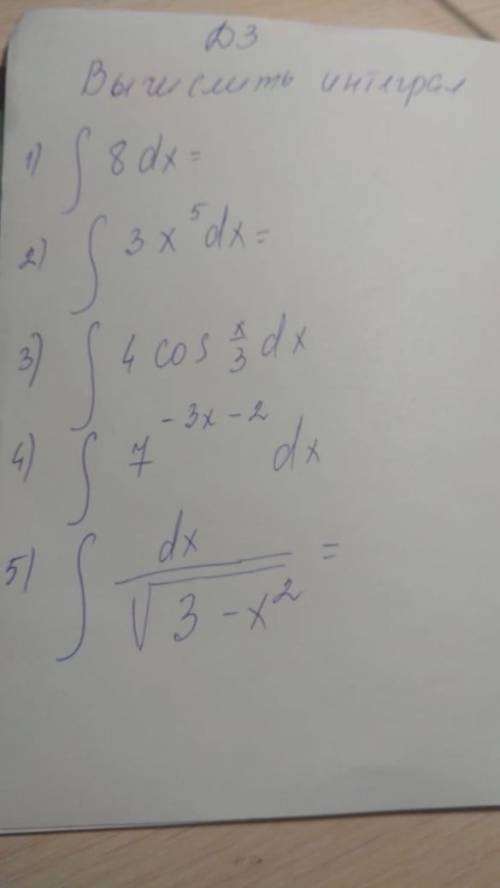 ДЗ
Вычислить интеграл
1) ∫ 8 dx =
2) ∫ 3x⁵ dx =
3) ∫ 4 cos x/3 dx
4) ∫ 7^(-3x-2) dx
5) ∫ dx/√(3-x²) =